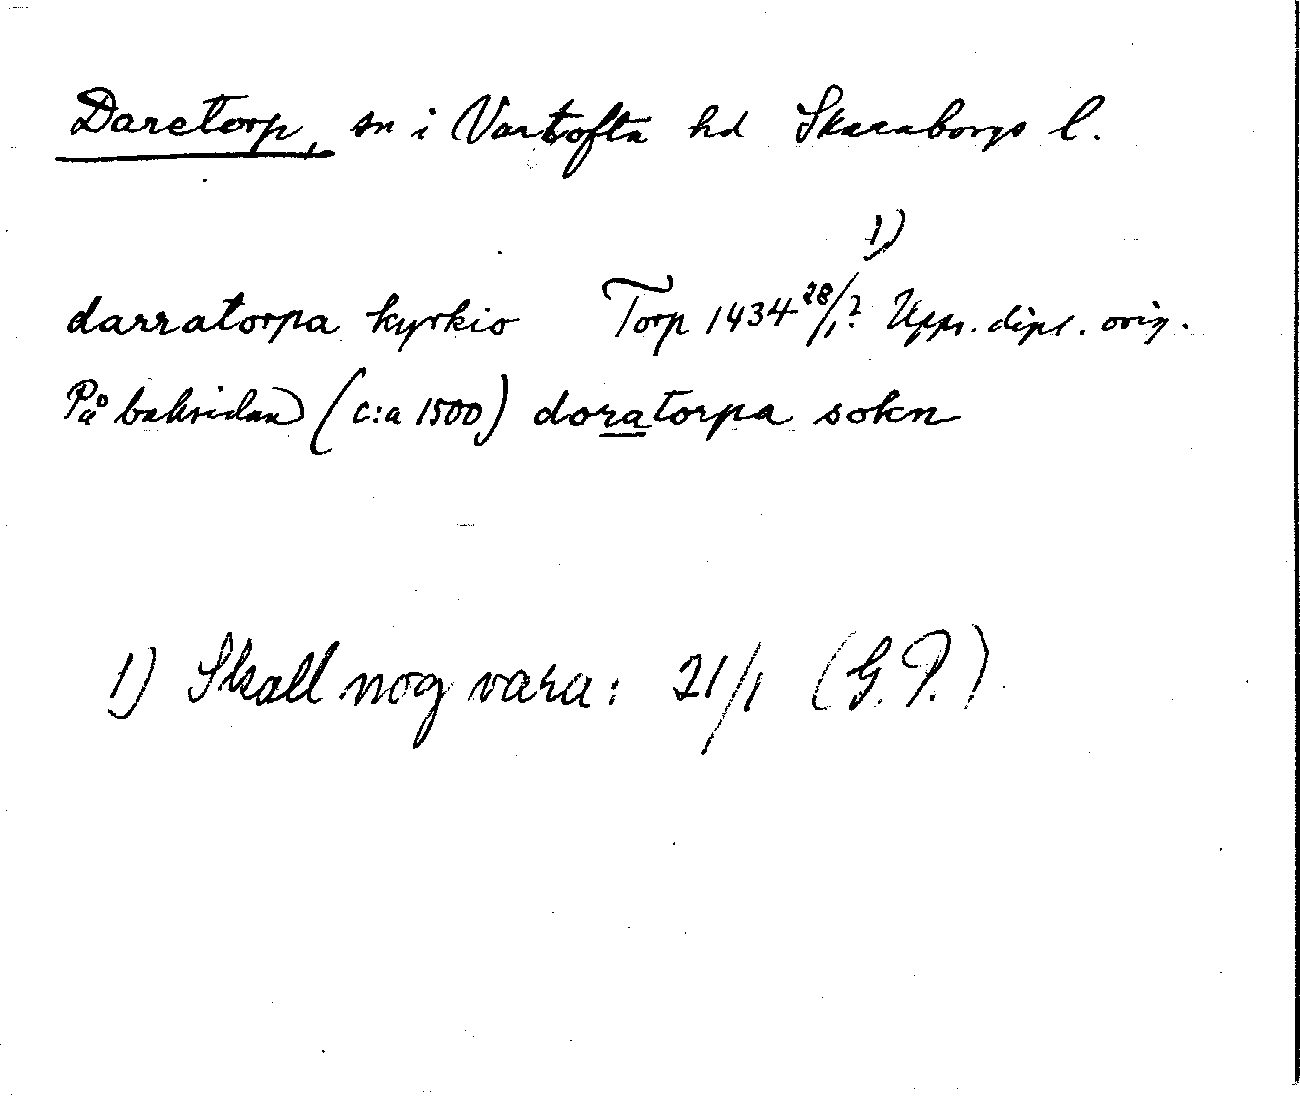 Daretorp, sn i Vartofta hd Skaraborgs l.
darratorpa kyrkio Torp 1434 28/1? 1) Upps. dipl. orig.
På baksidan (c:a 1500) doratorpa sokn
1) Skall nog vara: 21/1 (G.P.)